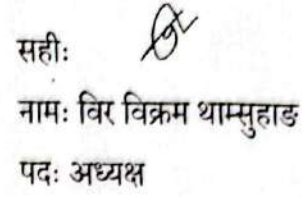 सहीः
नामः विर विक्रम थाम्सुहाङ
पदः अध्यक्ष